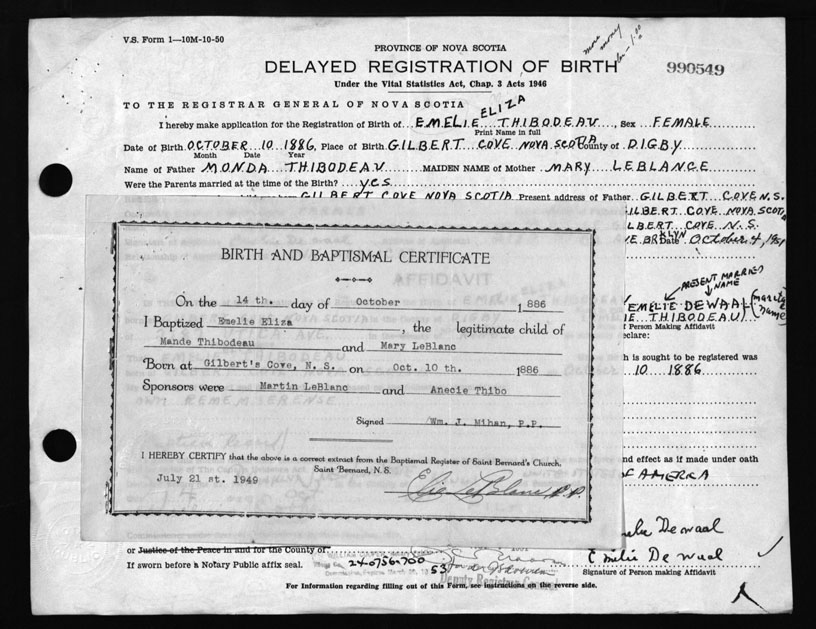 V.S. Form 1—10M-10-50
more money
PROVINCE OF NOVA SCOTIA
DELAYED REGISTRATION OF BIRTH
990549
Under the Vital Statistics Act, Chap. 3 Acts 1946
TO THE REGISTRAR GENERAL OF NOVA SCOTIA
ELIZA
I hereby make application for the Registration of Birth of EMELIE THIBODEAU, Sex FEMALE
Print Name in full
Date of Birth OCTOBER 10 1886, Place of Birth GILBERT COVE NOVA SCOTIA County of DIGBY
Month Date Year
Name of Father MONDA THIBODEAU MAIDEN NAME of Mother MARY LEBLANCE
Were the Parents married at the time of the Birth? YES
GILBERT COVE NOVA SCOTIA Present address of Father GILBERT COVE N.S.
ILBERT COVE NOVA SCOTIA
LBERT COVE N.S.
VE. BRKLYN Date October 4, 1951
BIRTH AND BAPTISMAL CERTIFICATE
AFFIDAVIT
PRESENT MARRIED NAME
On the 14 th. day of October 1886
EMELIE DEWAAL
I Baptized Emelie Eliza, the legitimate child of
IE THIBODEAU) (maiden name)
f Person Making Affidavit
eclare:
Mande Thibodeau and Mary LeBlanc
h is sought to be registered was
Born at Gilbert's Cove, N. S. on Oct. 10 th. 1886
10 1886
Sponsors were Martin LeBlanc and Anecie Thibo
OWN REMEMBERENSE
Signed Wm. J. Mihan, P.P.
I HEREBY CERTIFY that the above is a correct extract from the Baptismal Register of Saint Bernard's Church,
nd effect as if made under oath
Saint Bernard, N. S.
OF AMERICA
July 21 st. 1949
Elie LeBlanc P.P.
elie Dewaal
or Justice of the Peace in and for the County of
Emelie De waal
240756-700
53
If sworn before a Notary Public affix seal.
Deputy Registrar General
Signature of Person Making Affidavit
For Information regarding filling out of this Form, see instructions on the reverse side.